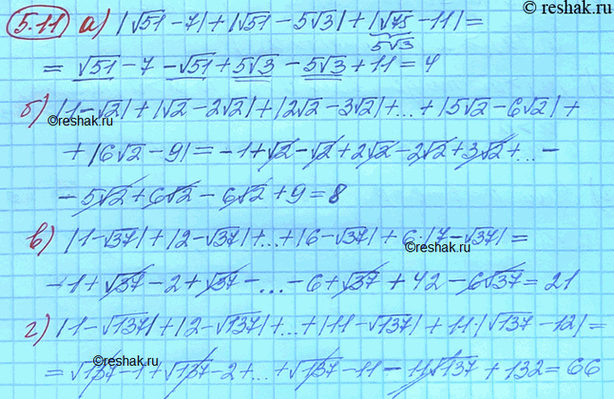 © reshak.ru
5.11 а) |√51 - 7| + |√51 - 5√3| + |√75 - 11| =
5√3
= √51 - 7 - √51 + 5√3 - 5√3 + 11 = 4
б) |1 - √2| + |√2 - 2√2| + |2√2 - 3√2| + ... + |5√2 - 6√2| +
©reshak.ru
+ |6√2 - 9| = -1 + √2 - √2 + 2√2 - 2√2 + 3√2 + ... -
- 5√2 + 6√2 - 6√2 + 9 = 8
©reshak.ru
в) |1 - √37| + |2 - √37| + ... + |6 - √37| + 6·|7 - √37| =
-1 + √37 - 2 + √37 - ... - 6 + √37 + 42 - 6√37 = 21
г) |1 - √137| + |2 - √137| + ... + |11 - √137| + 11·|√137 - 12| =
©reshak.ru
= √137 - 1 + √137 - 2 + ... + √137 - 11 - 11√137 + 132 = 66